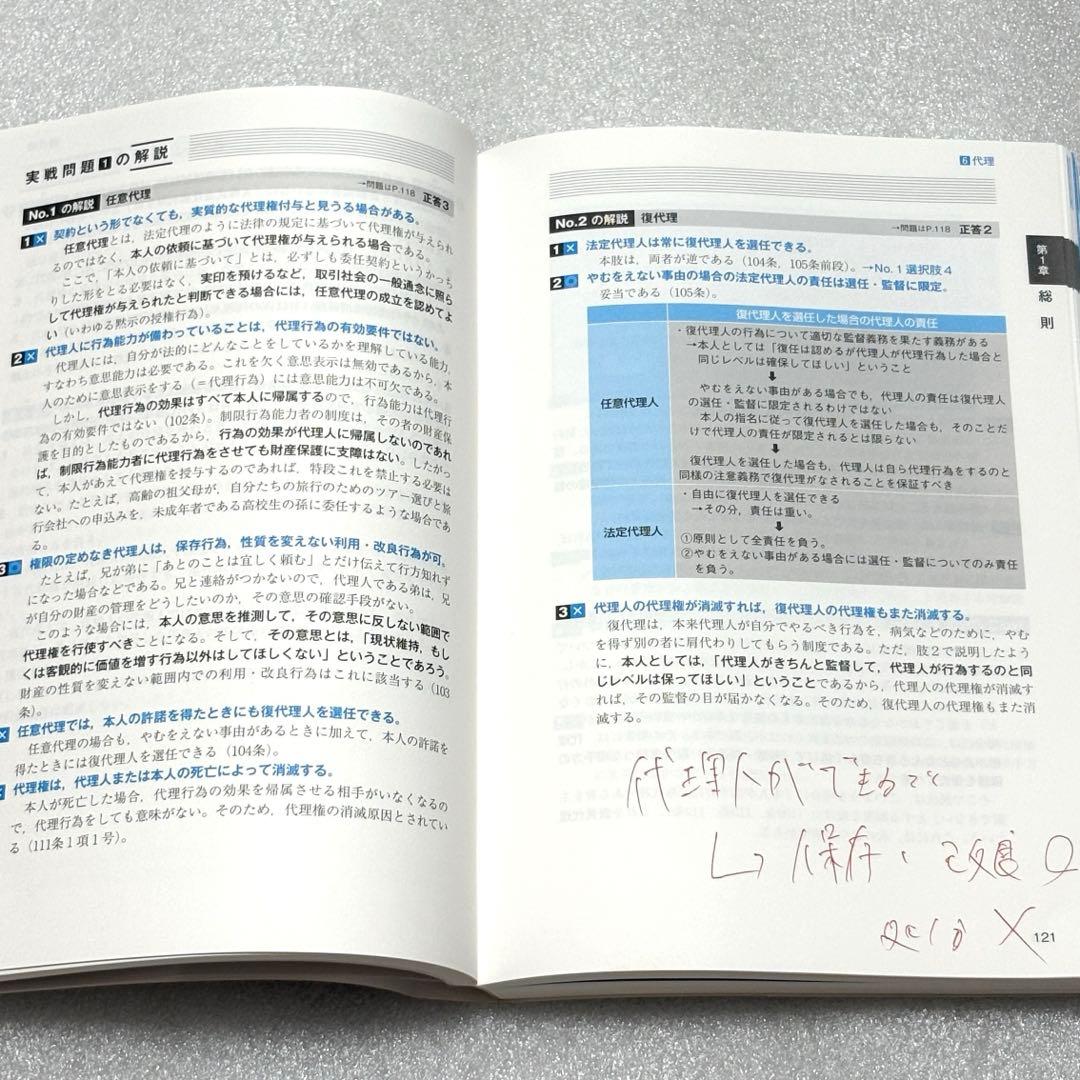 実戦問題1の解説
No.1 の解説 任意代理
→問題はP.118 正答3
1× 契約という形でなくても，実質的な代理権付与と見うる場合がある。
任意代理とは，法定代理のように法律の規定に基づいて代理権が与えられ
るのではなく，本人の依頼に基づいて代理権が与えられる場合である。
ここで，「本人の依頼に基づいて」とは，必ずしも委任契約というかっち
りした形をとる必要はなく，実印を預けるなど，取引社会の一般通念に照ら
して代理権が与えられたと判断できる場合には，任意代理の成立を認めてよ
い（いわゆる黙示の授権行為）。
2× 代理人に行為能力が備わっていることは，代理行為の有効要件ではない。
代理人には，自分が法的にどんなことをしているかを理解している能力，
すなわち意思能力は必要である。これを欠く意思表示は無効であるから，本
人のために意思表示をする（＝代理行為）には意思能力は不可欠である。
しかし，代理行為の効果はすべて本人に帰属するので，行為能力は代理行
為の有効要件ではない（102条）。制限行為能力者の制度は，その者の財産保
護を目的としたものであるから，行為の効果が代理人に帰属しないのであれ
ば，制限行為能力者に代理行為をさせても財産保護に支障はない。したがっ
て，本人があえて代理権を授与するのであれば，特段これを禁止する必要は
ない。たとえば，高齢の祖父母が，自分たちの旅行のためのツアー選びと旅
行会社への申込みを，未成年者である高校生の孫に委任するような場合であ
る。
3○ 権限の定めなき代理人は，保存行為，性質を変えない利用・改良行為が可。
たとえば，兄が弟に「あとのことは宜しく頼む」とだけ伝えて行方知れず
になった場合などである。兄と連絡がつかないので，代理人である弟は，兄
が自分の財産の管理をどうしたいのか，その意思の確認手段がない。
このような場合には，本人の意思を推測して，その意思に反しない範囲で
代理権を行使すべきことになる。そして，その意思とは，「現状維持，もし
くは客観的に価値を増す行為以外はしてほしくない」ということであろう。
財産の性質を変えない範囲内での利用・改良行為はこれに該当する（103
条）。
× 任意代理では，本人の許諾を得たときにも復代理人を選任できる。
任意代理の場合も，やむをえない事由があるときに加えて，本人の許諾を
得たときには復代理人を選任できる（104条）。
× 代理権は，代理人または本人の死亡によって消滅する。
本人が死亡した場合，代理行為の効果を帰属させる相手がいなくなるの
で，代理行為をしても意味がない。そのため，代理権の消滅原因とされてい
る（111条1項1号）。
6代理
No.2 の解説 復代理
→問題はP.118 正答2
1× 法定代理人は常に復代理人を選任できる。
本肢は，両者が逆である（104条，105条前段）。→No.1選択肢4
2○ やむをえない事由の場合の法定代理人の責任は選任・監督に限定。
妥当である（105条）。
復代理人を選任した場合の代理人の責任
任意代理人
・復代理人の行為について適切な監督義務を果たす義務がある
→本人としては「復任は認めるが代理人が代理行為した場合と
同じレベルは確保してほしい」ということ
⬇
やむをえない事由がある場合でも，代理人の責任は復代理人
の選任・監督に限定されるわけではない
本人の指名に従って復代理人を選任した場合も，そのことだ
けで代理人の責任が限定されるとは限らない
⬇
復代理人を選任した場合も，代理人は自ら代理行為をするのと
同様の注意義務で復代理がなされることを保証すべき
法定代理人
・自由に復代理人を選任できる
→その分，責任は重い。
⬇
①原則として全責任を負う。
②やむをえない事由がある場合には選任・監督についてのみ責任
を負う。
3× 代理人の代理権が消滅すれば，復代理人の代理権もまた消滅する。
復代理は，本来代理人が自分でやるべき行為を，病気などのために，やむ
を得ず別の者に肩代わりしてもらう制度である。ただ，肢2で説明したよう
に，本人としては，「代理人がきちんと監督して，代理人が行為するのと同
じレベルは保ってほしい」ということであるから，代理人の代理権が消滅す
れば，その監督の目が届かなくなる。そのため，復代理人の代理権もまた消
滅する。
第1章
総則
代理人ができるで
↳ 保存、 ○
×
121